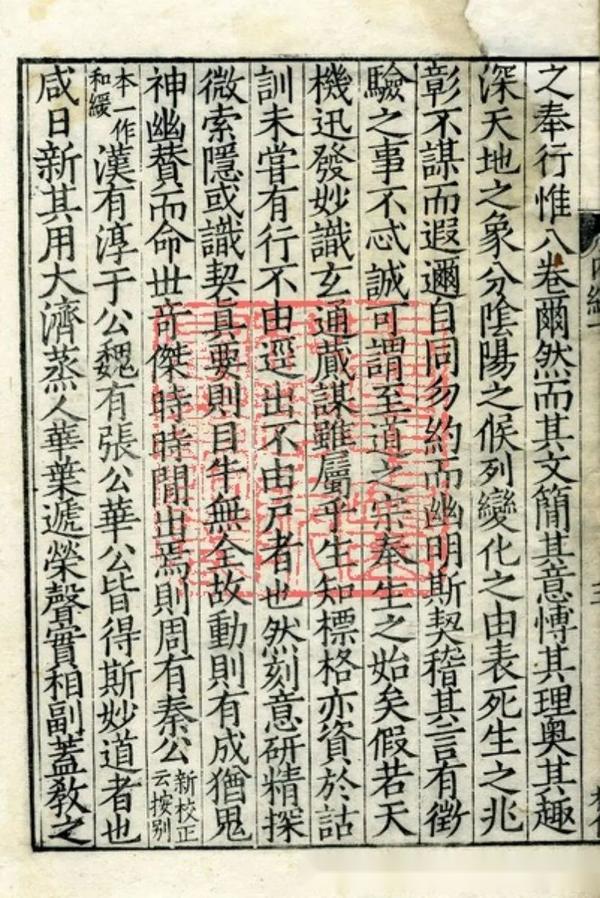 之奉行惟八卷爾然而其文簡其意愽其理奧其趣
深天地之象分隂陽之候列變化之由表死生之兆
彰不謀而遐邇自同勿約而幽明斯契稽其言有徵
驗之事不忒誠可謂至道之宗奉生之始矣假若天
機迅發妙識玄通蕆謀雖屬乎生知標格亦資於詁
訓未甞有行不由逕出不由戶者也然刻意研精探
微索隱或識契真要則目牛無全故動則有成猶鬼
神幽賛而命世奇傑時時間出焉則周有秦公新校正云按别
本一作和緩漢有淳于公魏有張公華公皆得斯妙道者也
咸日新其用大濟蒸人華葉遞榮聲實相副蓋敎之